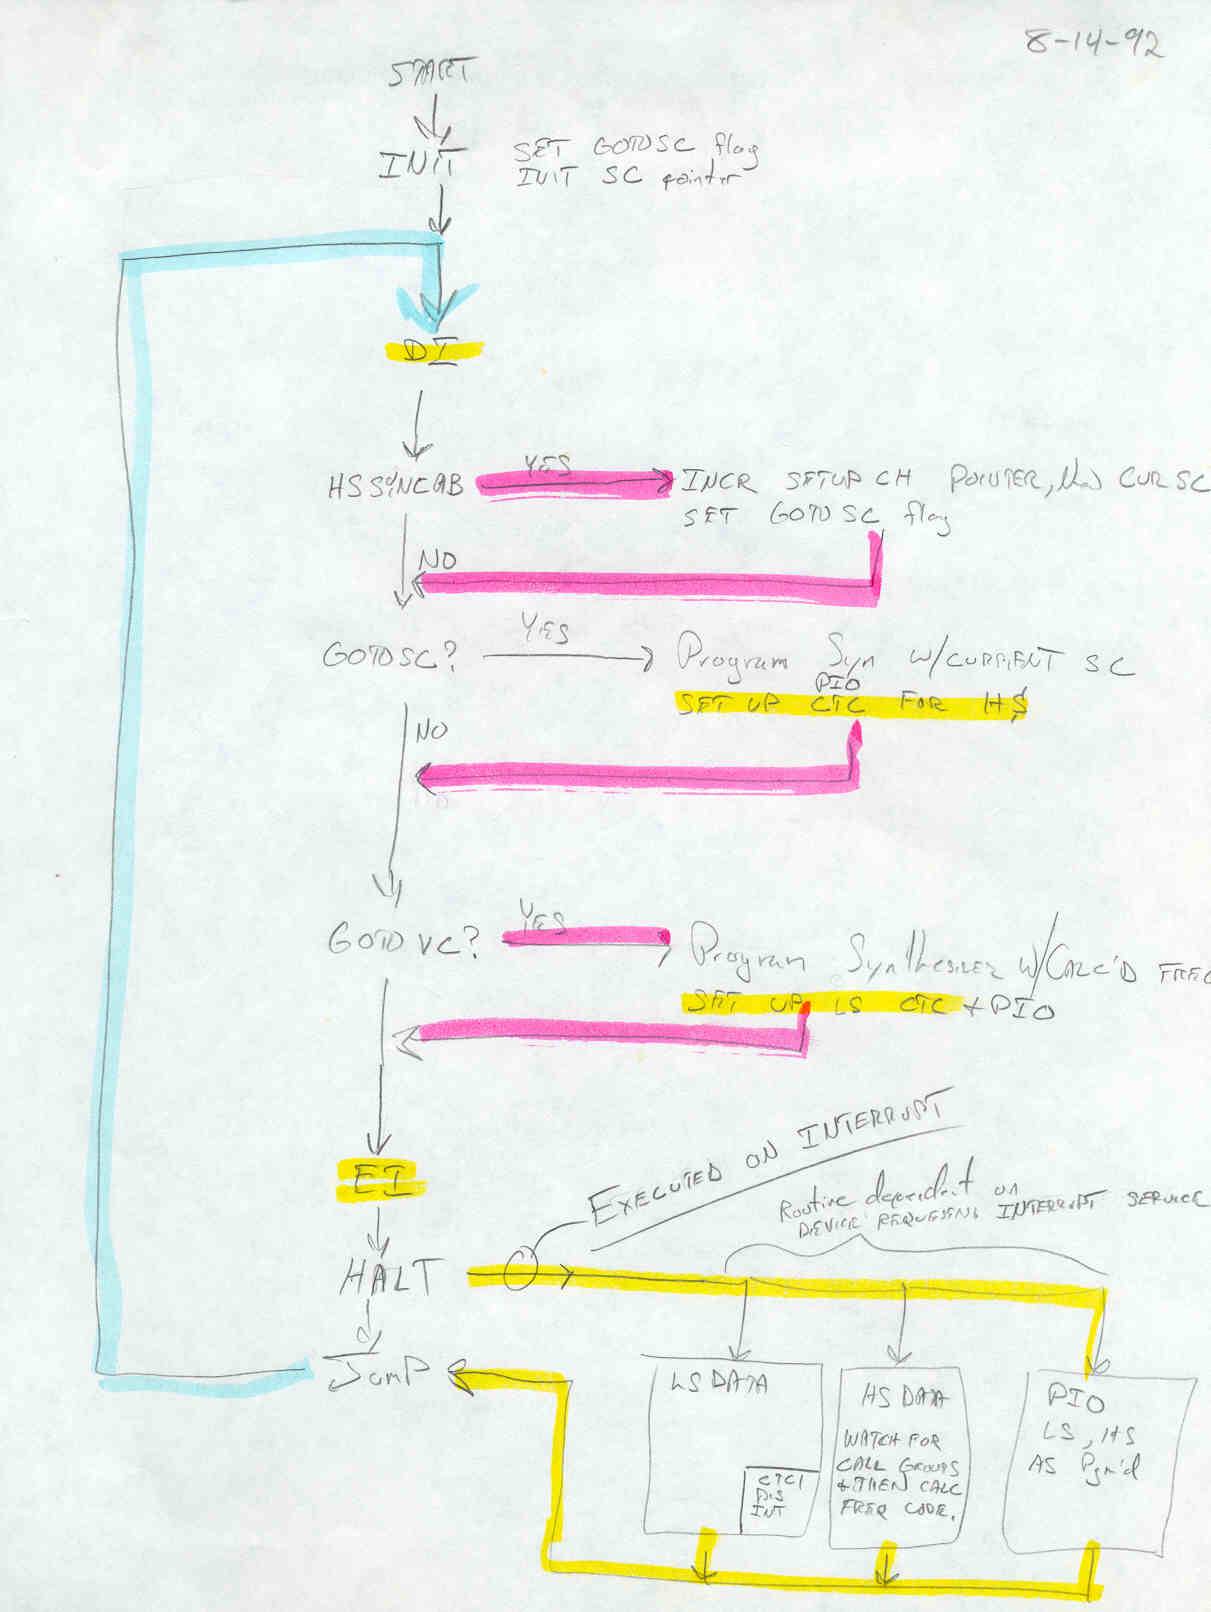 8-14-92
START
INIT
SET GOTOSC flag
INIT SC pointer
DI
HSSYNCAB
YES
INCR SETUP CH POINTER, then CURSC
SET GOTO SC flag
NO
GOTOSC?
YES
Program Syn w/CURRENT SC
PIO
SET UP CTC FOR HS
NO
GOTO VC?
YES
Program Synthesizer w/CALC'D FREQ
SET UP LS CTC + PIO
EI
EXECUTED ON INTERRUPT
Routine dependent on
DEVICE REQUESING INTERRUPT SERVICE
HALT
JUMP
LS DATA
CTC1
DIS
INT
HS DATA
WATCH FOR
CALL GROUPS
& THEN CALC
FREQ CODE.
PIO
LS, HS
AS Pgm'd